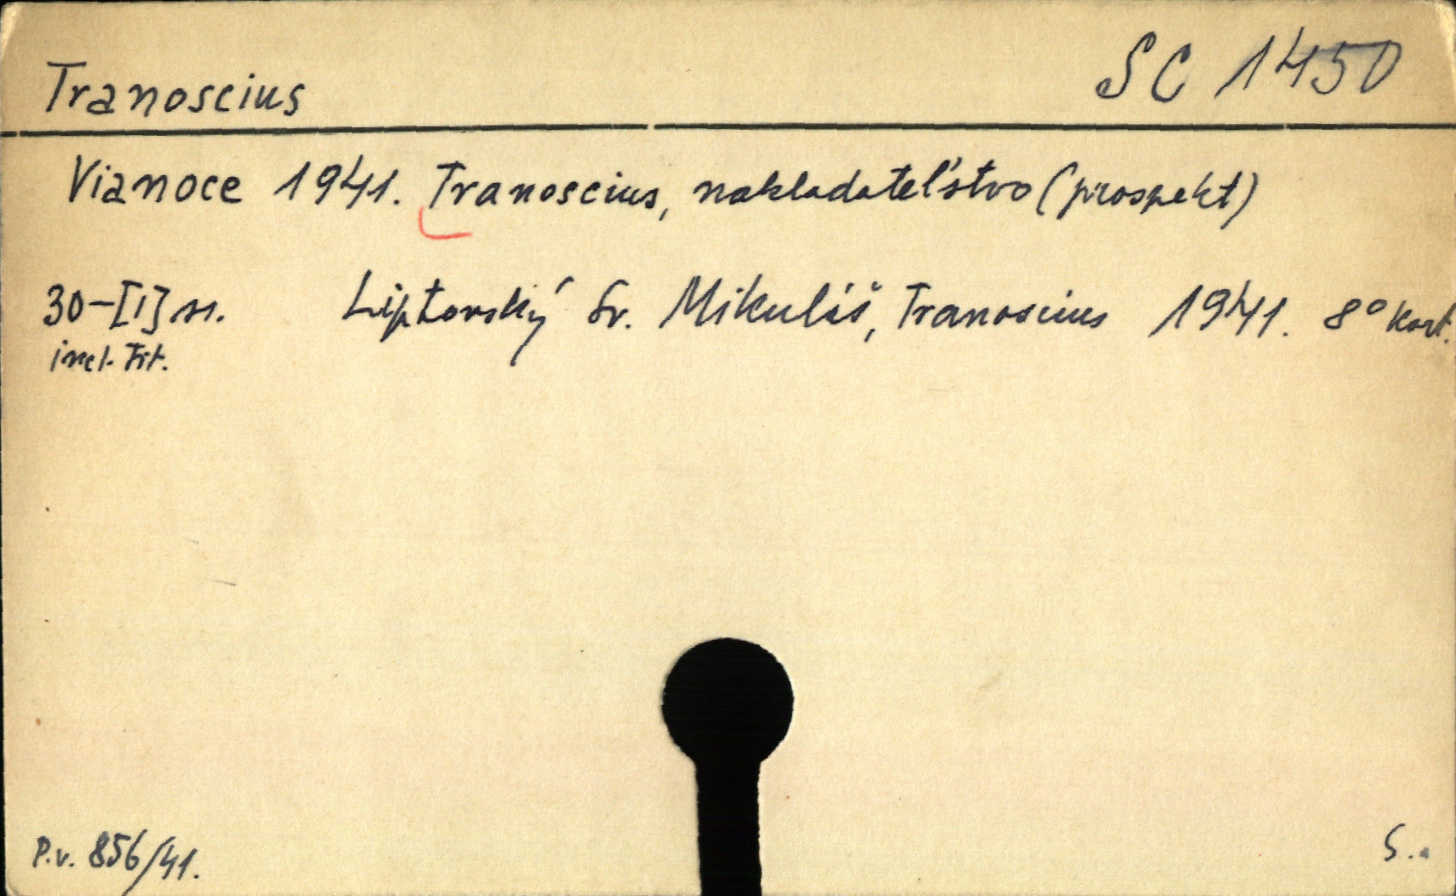 Tranoscius
SC 1450
Vianoce 1941. Tranoscius, nakladateľstvo (prospekt)
30-[1] ss. Liptovský Sv. Mikuláš, Tranoscius 1941. 8° kart.
incl. Tit.
P.v. 856/41.
S.